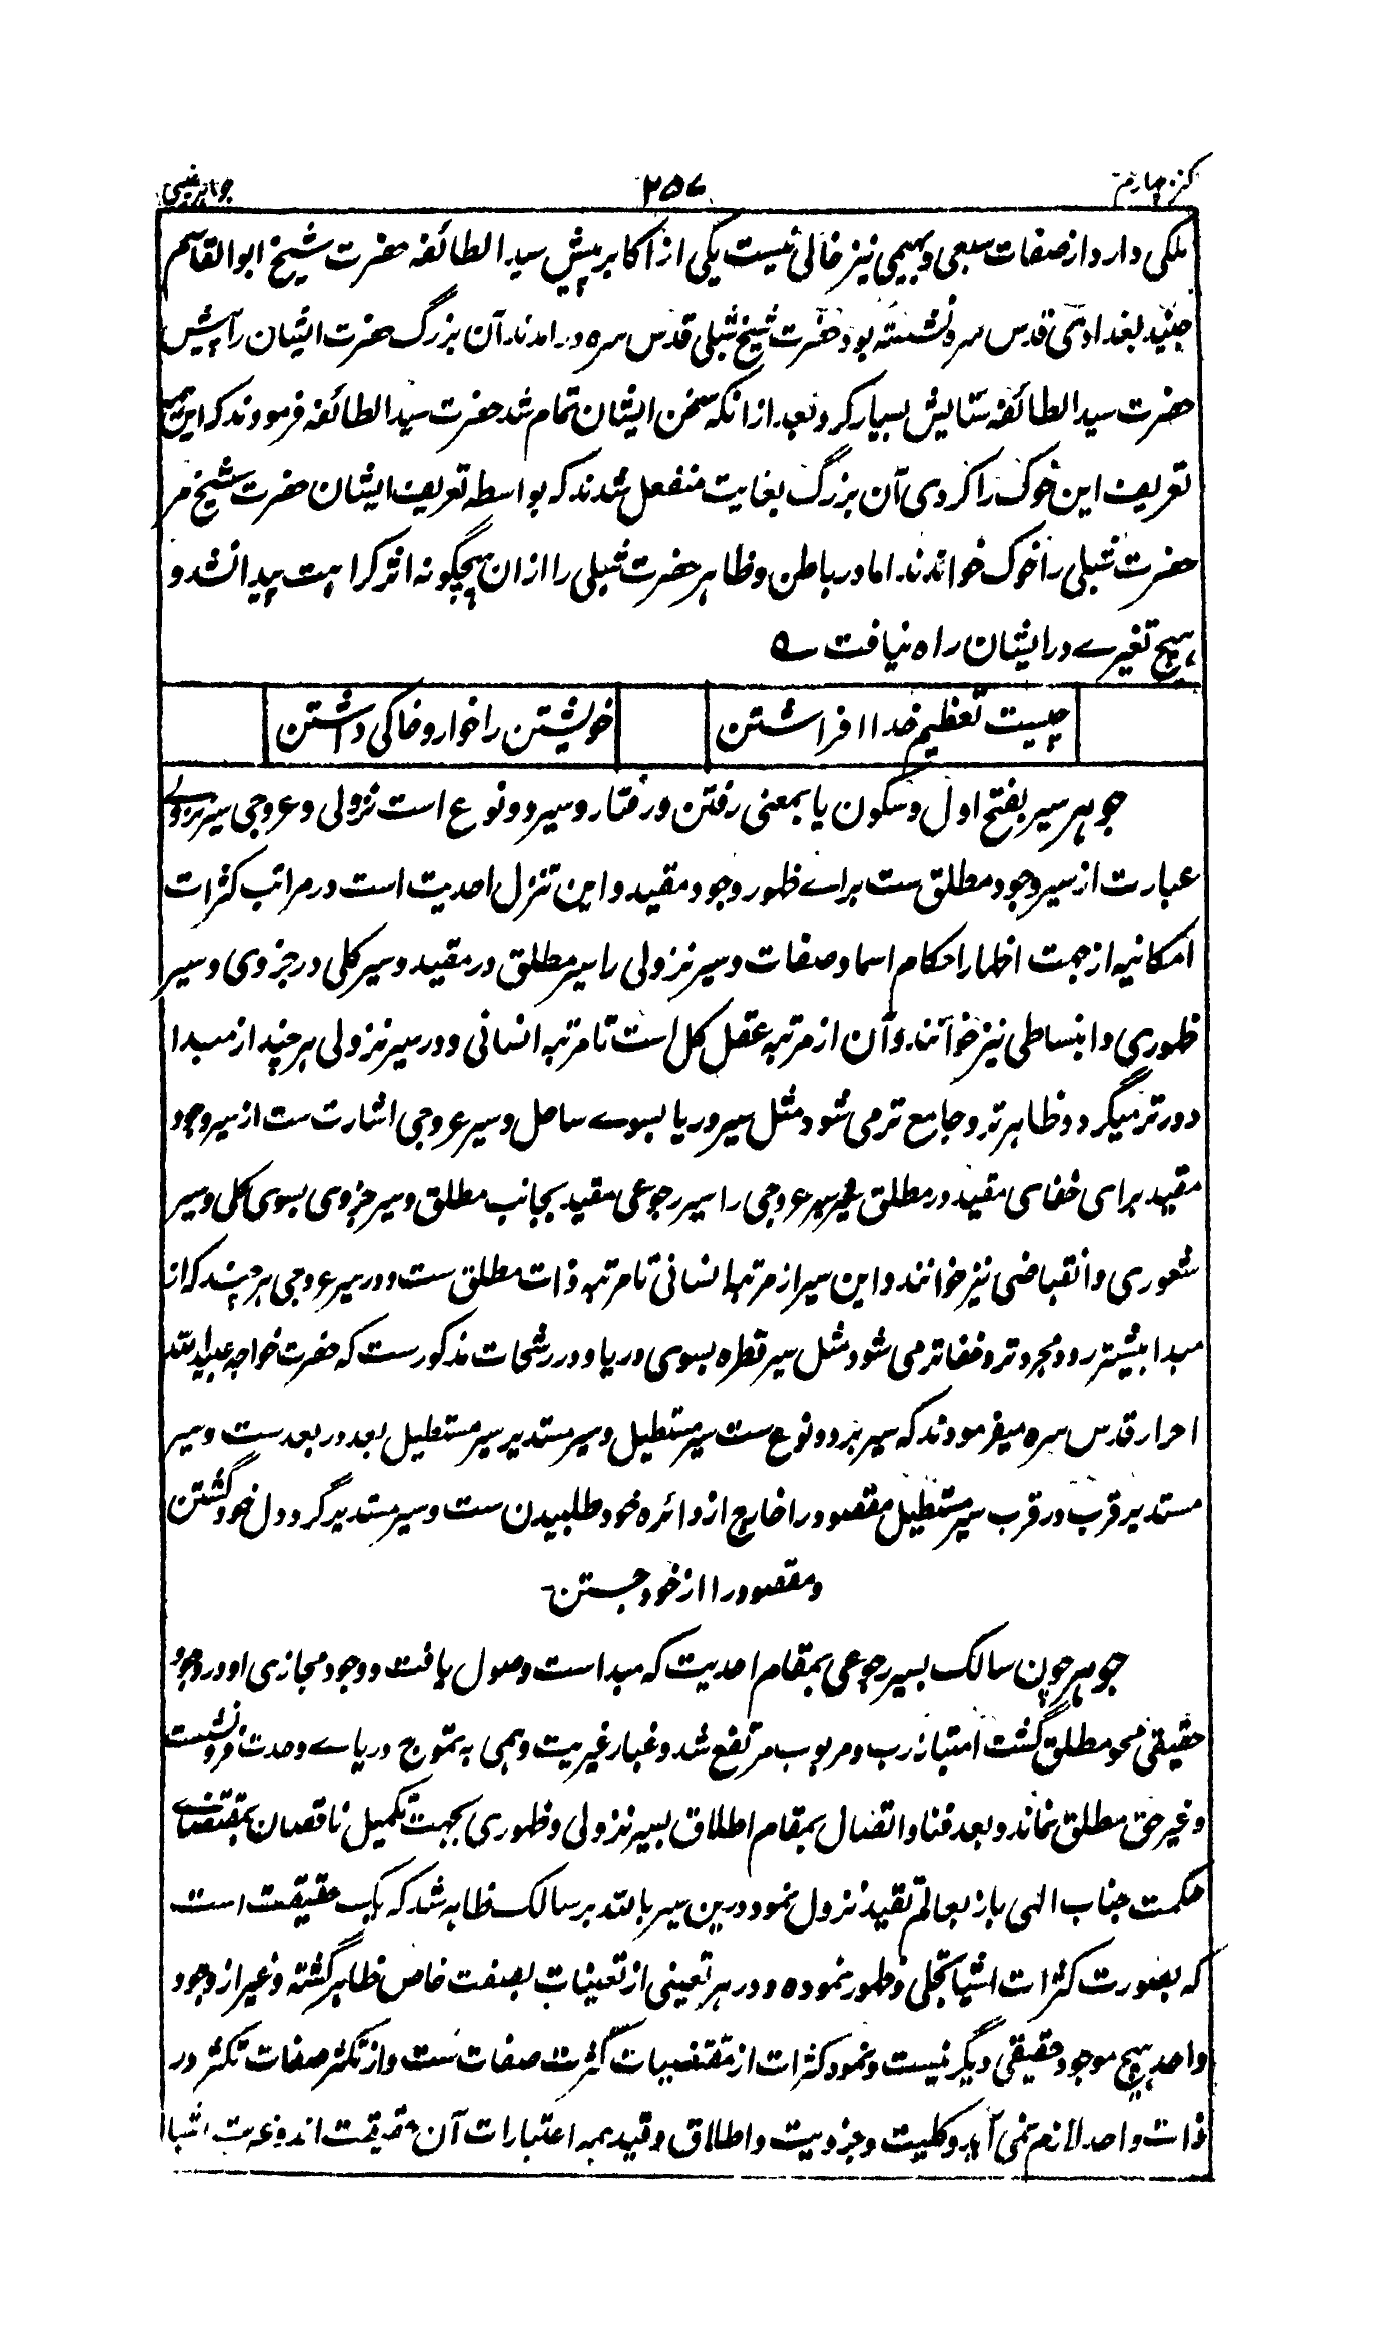 کنز چهارم ۲۵۷ جواهر غیبی
ملکی دارد از صفات سبعی و بهیمی نیز خالی نیست یکی از اکابر پیش سید الطائفه حضرت شیخ ابوالقاسم
جنید بغدادی قدس سره نشسته بود حضرت شیخ شبلی قدس سره درامدند آن بزرگ حضرت ایشان را پیش
حضرت سید الطائفه ستایش بسیار کرد بعد ازانکه سخن ایشان تمام شد حضرت سید الطائفه فرمودند که این همه
تعریف این خوک را کردی آن بزرگ بغایت منفعل شدند که بواسطه تعریف ایشان حضرت شیخ مر
حضرت شبلی را خوک خواندند اما در باطن و ظاهر حضرت شبلی را ازان هیچگونه اثر کراهت پیدا نشد و
هیچ تغیرے در ایشان راه نیافت ے
چیست تعظیم خدا افراشتن خویشتن را خوار و خاکی داشتن
جوهر سیر بفتح اول و سکون یا بمعنی رفتن و رفتار و سیر دو نوع است نزولی و عروجی سیر نزولی
عبارت از سیر وجود مطلق ست براے ظهور وجود مقید و این تنزل احدیت است در مراتب کثرات
امکانیه از جهت اظهار احکام اسما و صفات و سیر نزولی را سیر مطلق در مقید و سیر کلی در جزوی و سیر
ظهوری و انبساطی نیز خوانند و آن از مرتبه عقل کل است تا مرتبه انسانی و در سیر نزولی هر چند از مبدا
دورتر میگردد ظاهرتر و جامع تر می شود مثل سیر دریا بسوے ساحل و سیر عروجی اشارت ست از سیر وجود
مقید برای خفای مقید در مطلق سیر عروجی را سیر رجوعی مقید بجانب مطلق و سیر جزوی بسوی کلی و سیر
شعوری و انقباضی نیز خوانند و این سیر از مرتبه انسانی تا مرتبه ذات مطلق ست و در سیر عروجی هر چند که از
مبدا بیشتر رود مجرد تر و خفاتر می شود مثل سیر قطره بسوی دریا و در رشحات مذکورست که حضرت خواجه عبیدالله
احرار قدس سره میفرمودند که سیر بر دو نوع ست سیر مستطیل و سیر مستدیر سیر مستطیل بعد در بعد ست و سیر
مستدیر قرب در قرب سیر مستطیل مقصود را خارج از دائره خود طلبیدن ست و سیر مستدیر گرد دل خود گشتن
و مقصود را از خود جستن
جوهر چون سالک بسیر رجوعی بمقام احدیت که مبدا است وصول یافت و وجود مجازی او در وجود
حقیقی محو مطلق گشت امتیاز رب و مربوب مرتفع شد و غبار غیریت وهمی به تموج دریاے وحدت فرو نشست
و غیر حق مطلق نماند و بعد فنا و اتصال بمقام اطلاق بسیر نزولی و ظهوری بجهت تکمیل ناقصان بمقتضاے
حکمت جناب الهی باز بعالم تقید نزول نمود درین سیر بالله بر سالک ظاهر شد که یک حقیقت است
که بصورت کثرات اشیا تجلی و ظهور نموده و در هر تعینی از تعینات بصفت خاص ظاهر گشته و غیر از وجود
واحد هیچ موجود حقیقی دیگر نیست و نمود کثرات از مقتضیات کثرت صفات ست و از تکثر صفات تکثر در
ذات واحد لازم نمی آید و کلیت و جزویت و اطلاق و قید همه اعتبارات آن حقیقت اند و غیریت اشیا